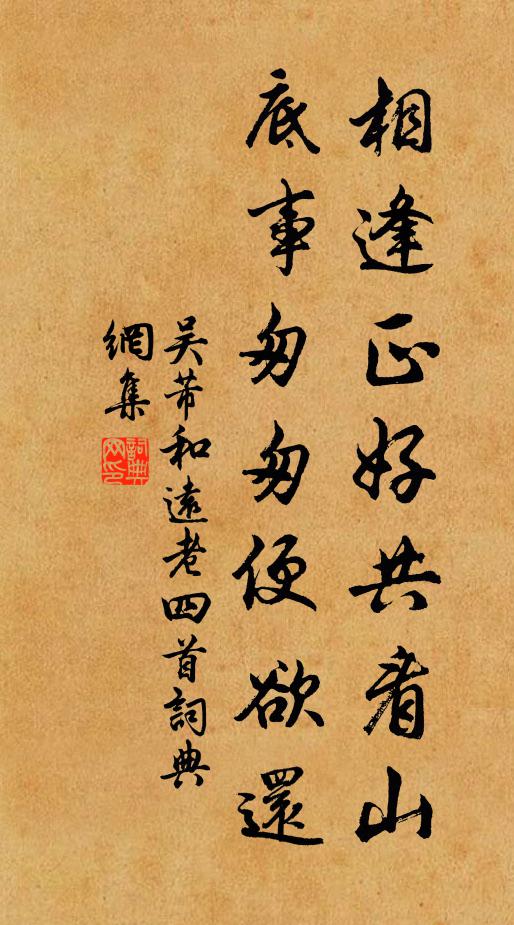 相逢正好共看山
底事匆匆便欲還
吴芾和遠老四首詞典
網集
詞典
网印